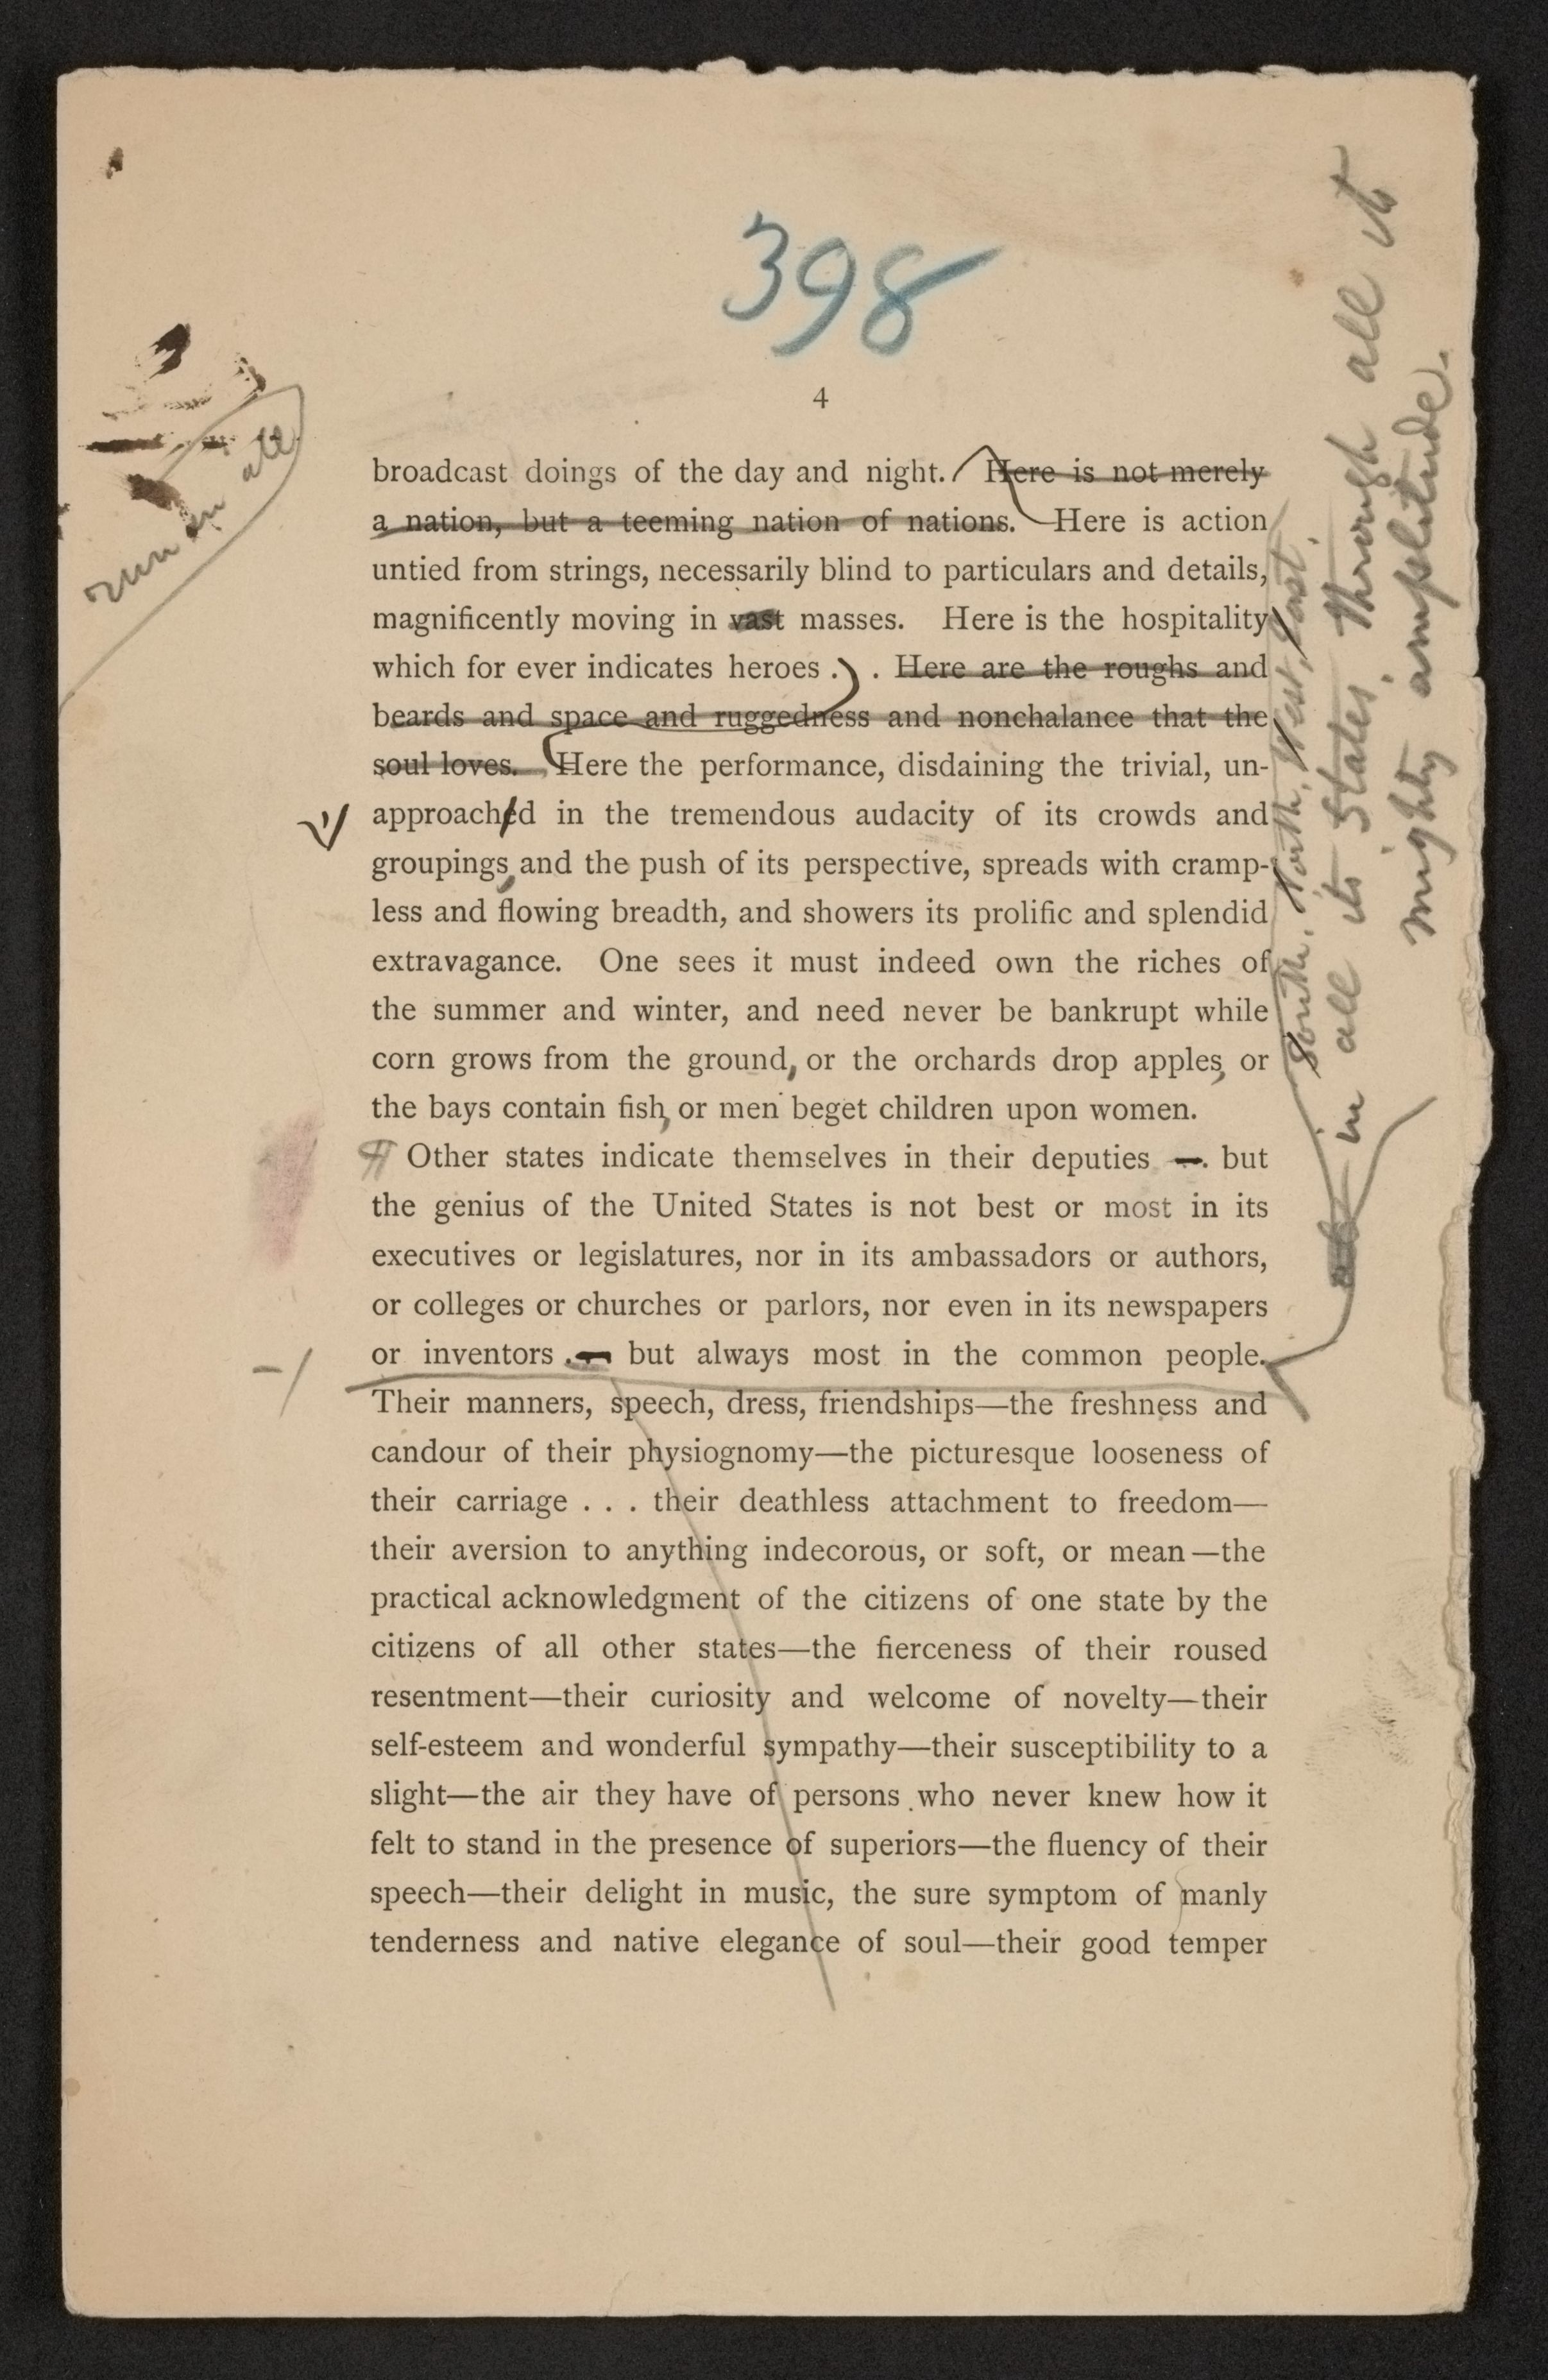 398
4
run in all
broadcast doings of the day and night. Here is not merely
a nation, but a teeming nation of nations. Here is action
untied from strings, necessarily blind to particulars and details,
magnificently moving in vast masses. Here is the hospitality
which for ever indicates heroes . . Here are the roughs and
beards and space and ruggedness and nonchalance that the
soul loves. Here the performance, disdaining the trivial, un-
approached in the tremendous audacity of its crowds and
groupings, and the push of its perspective, spreads with cramp-
less and flowing breadth, and showers its prolific and splendid
extravagance. One sees it must indeed own the riches of
the summer and winter, and need never be bankrupt while
corn grows from the ground, or the orchards drop apples, or
the bays contain fish, or men beget children upon women.
¶ Other states indicate themselves in their deputies —. but
the genius of the United States is not best or most in its
executives or legislatures, nor in its ambassadors or authors,
or colleges or churches or parlors, nor even in its newspapers
or inventors .— but always most in the common people.
Their manners, speech, dress, friendships—the freshness and
candour of their physiognomy—the picturesque looseness of
their carriage . . . their deathless attachment to freedom—
their aversion to anything indecorous, or soft, or mean—the
practical acknowledgment of the citizens of one state by the
citizens of all other states—the fierceness of their roused
resentment—their curiosity and welcome of novelty—their
self-esteem and wonderful sympathy—their susceptibility to a
slight—the air they have of persons who never knew how it
felt to stand in the presence of superiors—the fluency of their
speech—their delight in music, the sure symptom of manly
tenderness and native elegance of soul—their good temper
South, North, West, East.
in all its States, through all its
mighty amplitude.